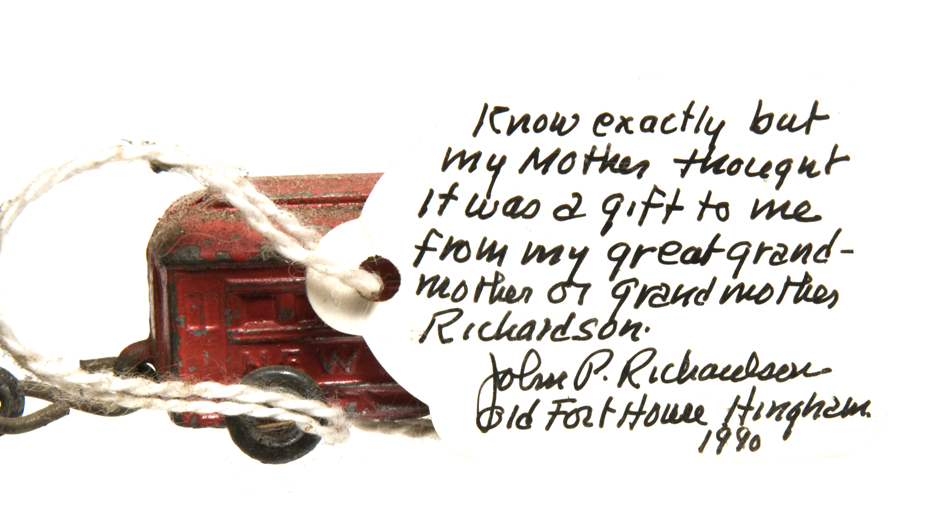 Know exactly but
my Mother thought
It was a gift to me
from my great grand-
mother or grandmother
Richardson.
John P. Richardson
Old Fort House Hingham.
1990
NEW